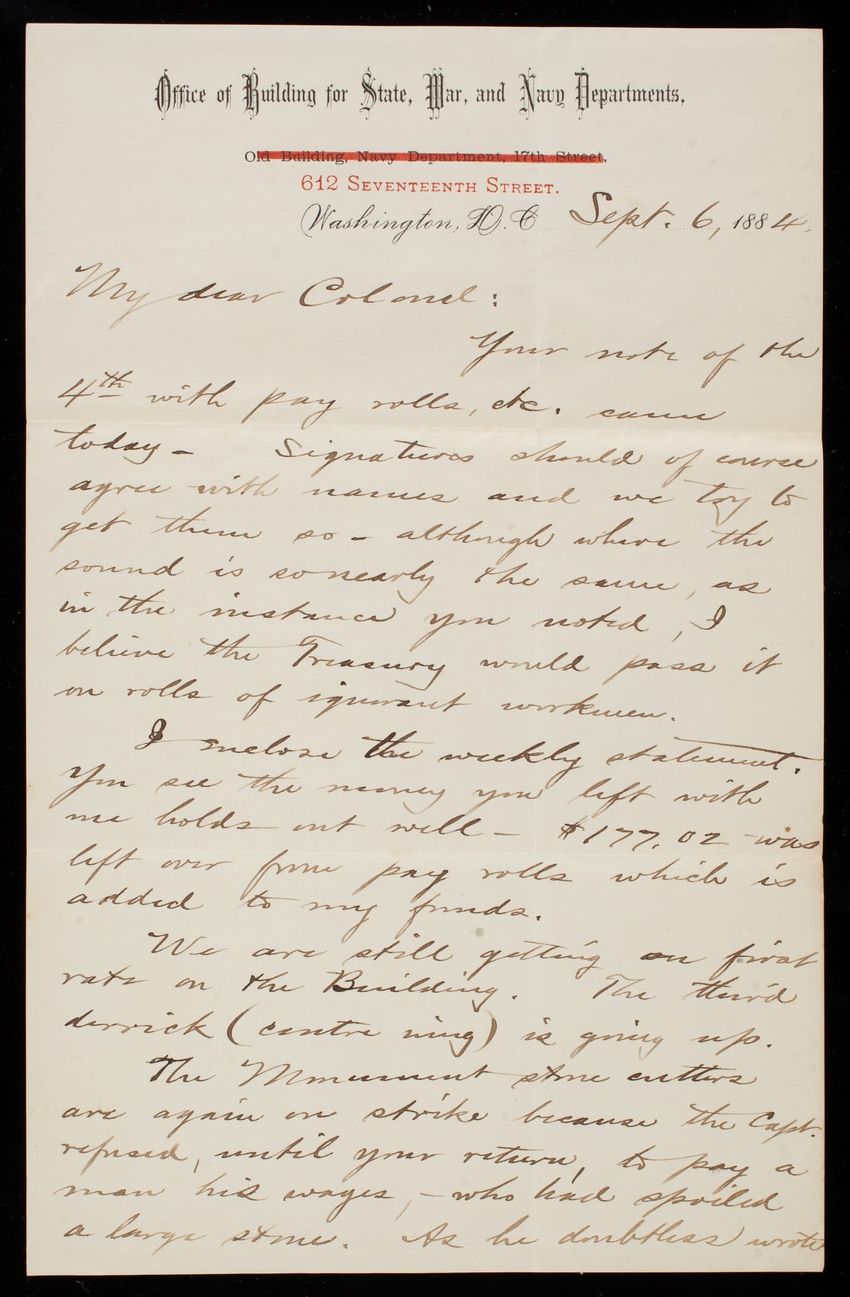 Office of Building for State, War, and Navy Departments,
Old Building, Navy Department, 17th Street,
612 Seventeenth Street.
Washington, D. C. Sept. 6, 1884.
My dear Colonel:
Your note of the
4th with pay rolls, etc. came
today - Signatures should of course
agree with names and we try to
get them so - although where the
sound is so nearly the same, as
in the instance you noted, I
believe the Treasury would pass it
on rolls of ignorant workmen.
I enclose the weekly statement.
You see the money you left with
me holds out well - $177.02 was
left over from pay rolls which is
added to my funds.
We are still getting on first
rate on the Building. The third
derrick (centre wing) is going up.
The Monument stone cutters
are again on strike because the Capt.
refused, until your return, to pay a
man his wages, - who had spoiled
a large stone. As he doubtless wrote